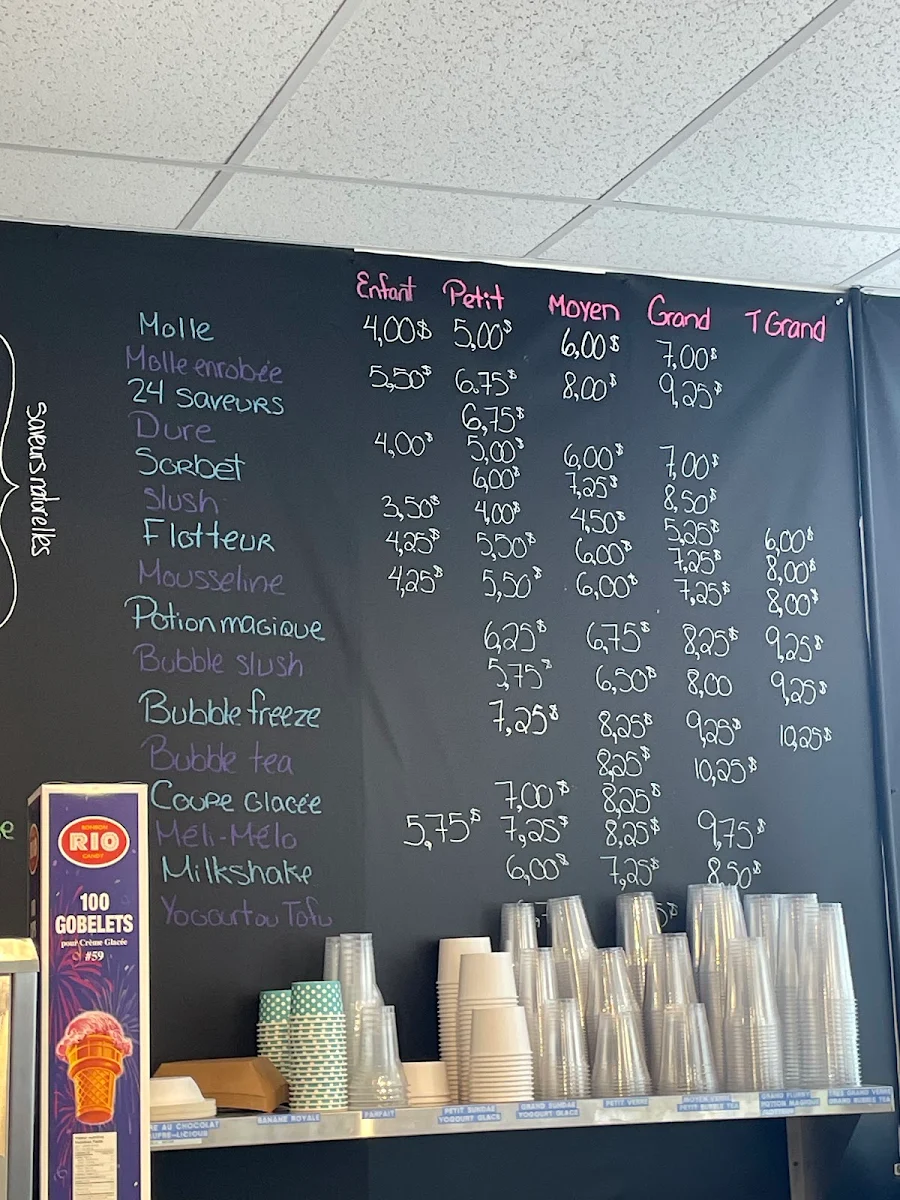 Enfant Petit Moyen Grand T Grand
Molle 4,00$ 5,00$ 6,00$ 7,00$
Molle enrobée 5,50$ 6.75$ 8,00$ 9,25$
24 saveurs 6,75$
Dure 4,00$ 5,00$ 6,00$ 7,00$
Sorbet 6,00$ 7,25$ 8,50$
Slush 3,50$ 4,00$ 4,50$ 5,25$ 6,00$
Flotteur 4,25$ 5,50$ 6,00$ 7,25$ 8,00$
Mousseline 4,25$ 5,50$ 6,00$ 7,25$ 8,00$
Potion magique 6,25$ 6,75$ 8,25$ 9,25$
Bubble slush 5,75$ 6,50$ 8,00 9,25$
Bubble freeze 7,25$ 8,25$ 9,25$ 10,25$
Bubble tea 8,25$ 10,25$
Coupe Glacée 7,00$ 8,25$
Méli-Mélo 5,75$ 7,25$ 8,25$ 9,75$
Milkshake 6,00$ 7,25$ 8,50$
Yogourt ou Tofu
Saveurs naturelles
BONBON
RIO
CANDY
100
GOBELETS
pour Crème Glacée
#59
AU CHOCOLAT
BANANE ROYALE
PARFAIT
PETIT SUNDAE
YOGOURT GLACÉ
GRAND SUNDAE
YOGOURT GLACÉ
PETIT VERRE
MOYEN VERRE
PETIT BUBBLE TEA
GRAND FLURRY
POTION MAGIQUE
TRÈS GRAND VERRE
GRAND BUBBLE TEA